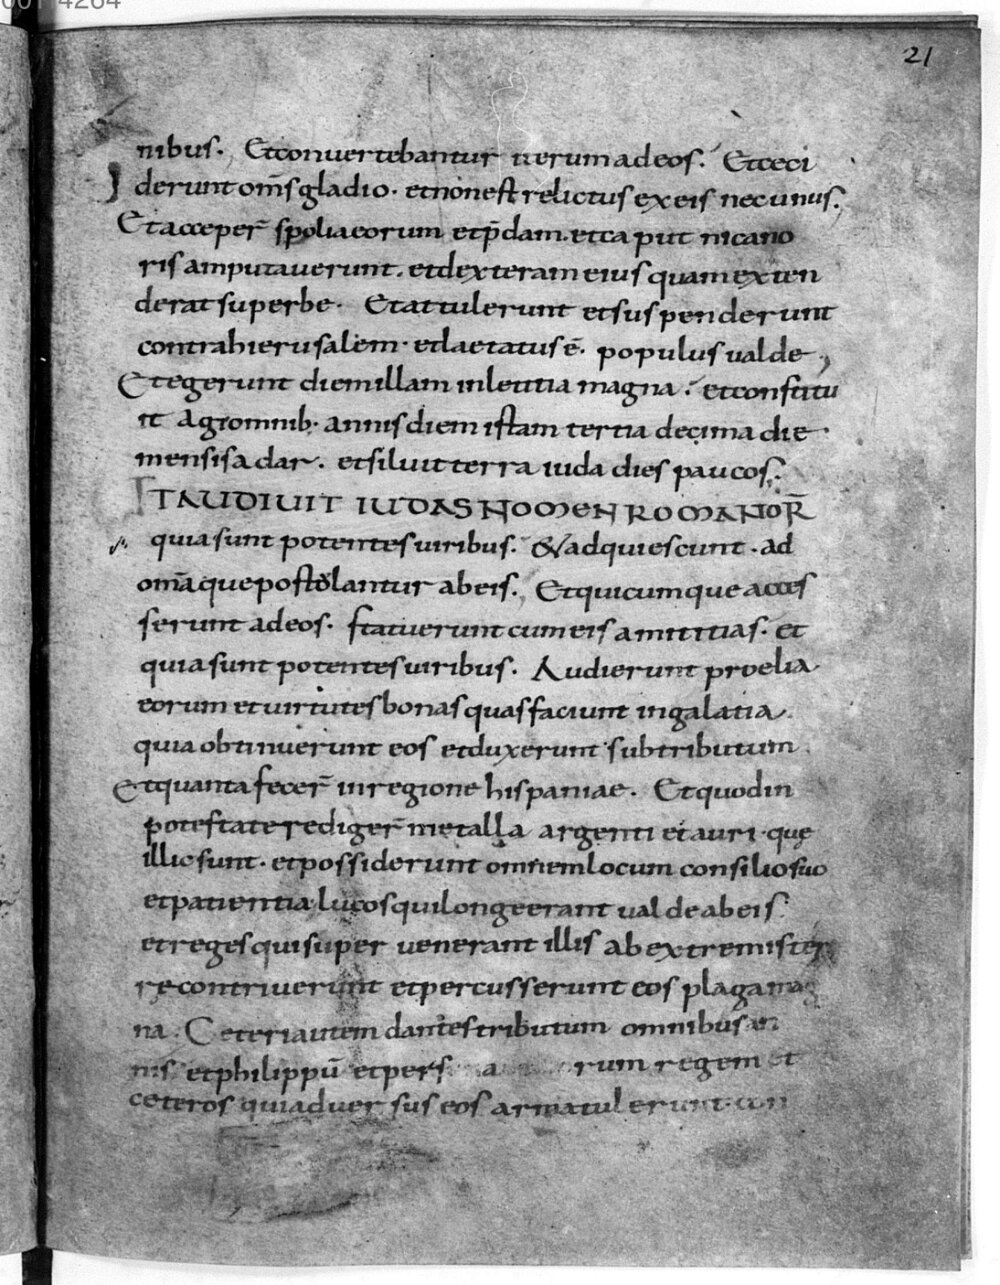 21
nibus. Et convertebantur iterum ad eos. Et ceci
derunt om̅s gladio. et non est relictus ex eis nec unus.
Et acceper̅ spolia eorum et p̅dam. et caput nicano
ris amputaverunt. et dexteram eius quam exten
derat superbe. Et attulerunt et suspenderunt
contra hierusalem. et laetatus ē. populus valde,
Et egerunt diem illam in letitia magna. et constitu
it agi omnib. annis diem istam tertia decima die
mensis adar. et siluit terra iuda dies paucos.
ET AUDIVIT IUDAS NOMEN ROMANOR̅
quia sunt potentes viribus. & adquiescunt. ad
om̅a que postolantur ab eis. Et quicumque acces
serunt ad eos. statuerunt cum eis amititias. et
quia sunt potentes viribus. Audierunt proelia
eorum et virtutes bonas quas faciunt in galatia.
quia obtinuerunt eos et duxerunt sub tributum.
Et quanta fecer̅ in regione hispaniae. Et quod in
potestate rediger̅ metalla argenti et auri. quę
illic sunt. et possiderunt omnem locum consilio suo
et patientia. locos qui longe erant valde ab eis.
et reges qui super venerant illis ab extremis ter
re contriverunt et percusserunt eos plaga mag
na. Ceteri autem dantes tributum omnibus an
nis et philippū et pers rum regem et
ceteros qui adversus eos arma tulerunt. con